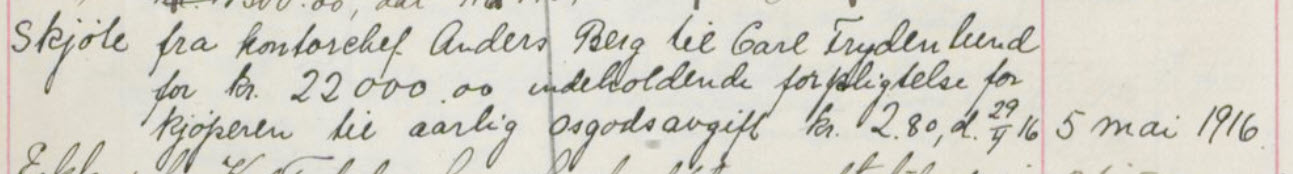 1500.00,
Skjöte fra kontorchef Anders Berg til Carl Frydenlund
for kr. 22000.00 indeholdende forpligtelse for
kjöperen til aarlig Osgodsavgift kr. 2.80, d. 29/4 16 5 mai 1916.